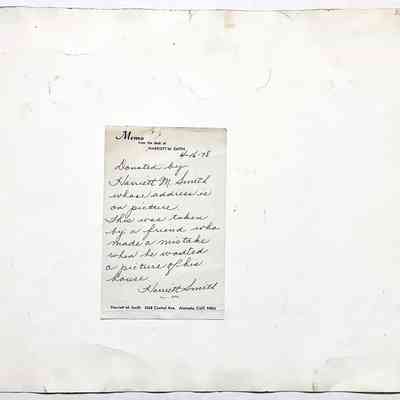 Memo
from the desk of
HARRIETT M. SMITH
4-16-78
Donated by
Harriett M. Smith
whose address is
on picture.
This was taken
by a friend who
made a mistake
when he wanted
a picture of his
house.
Harriett Smith
Harriett M. Smith Central Ave. Alameda, Calif.